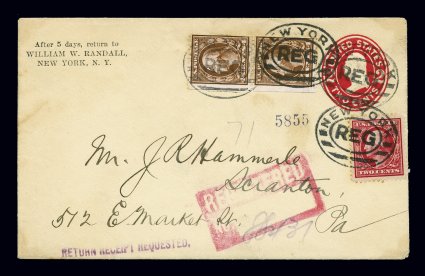 After 5 days, return to
WILLIAM W. RANDALL,
NEW YORK, N. Y.
NEW YORK
REG
UNITED STATES
REG
NEW YORK
REG
TWO CENTS
5855
71
Mr. J R Hammerle
Scranton,
512 E. Market St. Pa
REGISTERED
RETURN RECEIPT REQUESTED.